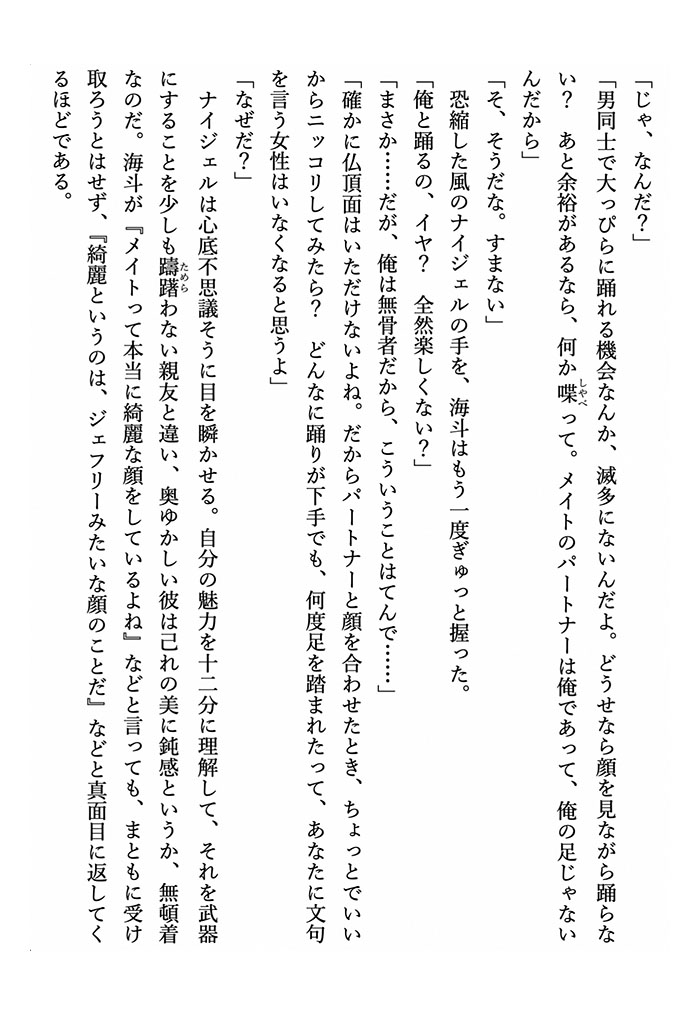 「じゃ、なんだ？」
「男同士で大っぴらに踊れる機会なんか、滅多にないんだよ。どうせなら顔を見ながら踊らな
い？　あと余裕があるなら、何か喋って。メイトのパートナーは俺であって、俺の足じゃない
んだから」
「そ、そうだな。すまない」
　恐縮した風のナイジェルの手を、海斗はもう一度ぎゅっと握った。
「俺と踊るの、イヤ？　全然楽しくない？」
「まさか……だが、俺は無骨者だから、こういうことはてんで……」
「確かに仏頂面はいただけないよね。だからパートナーと顔を合わせたとき、ちょっとでいい
からニッコリしてみたら？　どんなに踊りが下手でも、何度足を踏まれたって、あなたに文句
を言う女性はいなくなると思うよ」
「なぜだ？」
　ナイジェルは心底不思議そうに目を瞬かせる。自分の魅力を十二分に理解して、それを武器
にすることを少しも躊躇わない親友と違い、奥ゆかしい彼は己れの美に鈍感というか、無頓着
なのだ。海斗が『メイトって本当に綺麗な顔をしているよね』などと言っても、まともに受け
取ろうとはせず、『綺麗というのは、ジェフリーみたいな顔のことだ』などと真面目に返してく
るほどである。